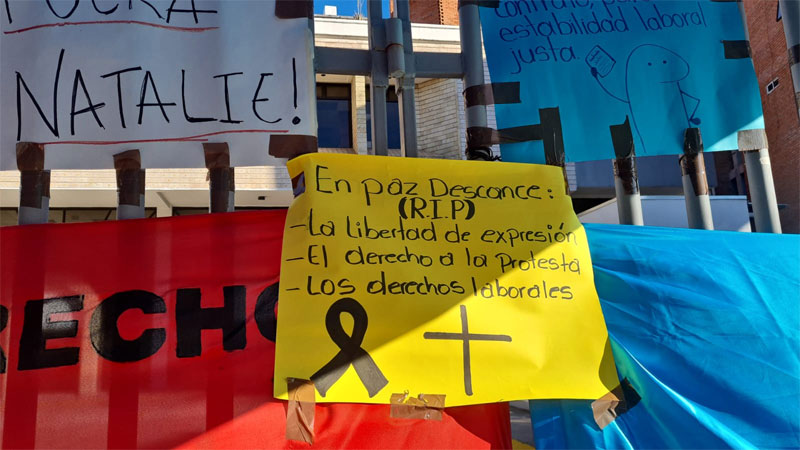 FUERA
NATALIE!
estabilidad laboral
justa.
En paz Descance:
(R.I.P)
- La libertad de expresión
- El derecho a la Protesta
- Los derechos laborales
ERECHO